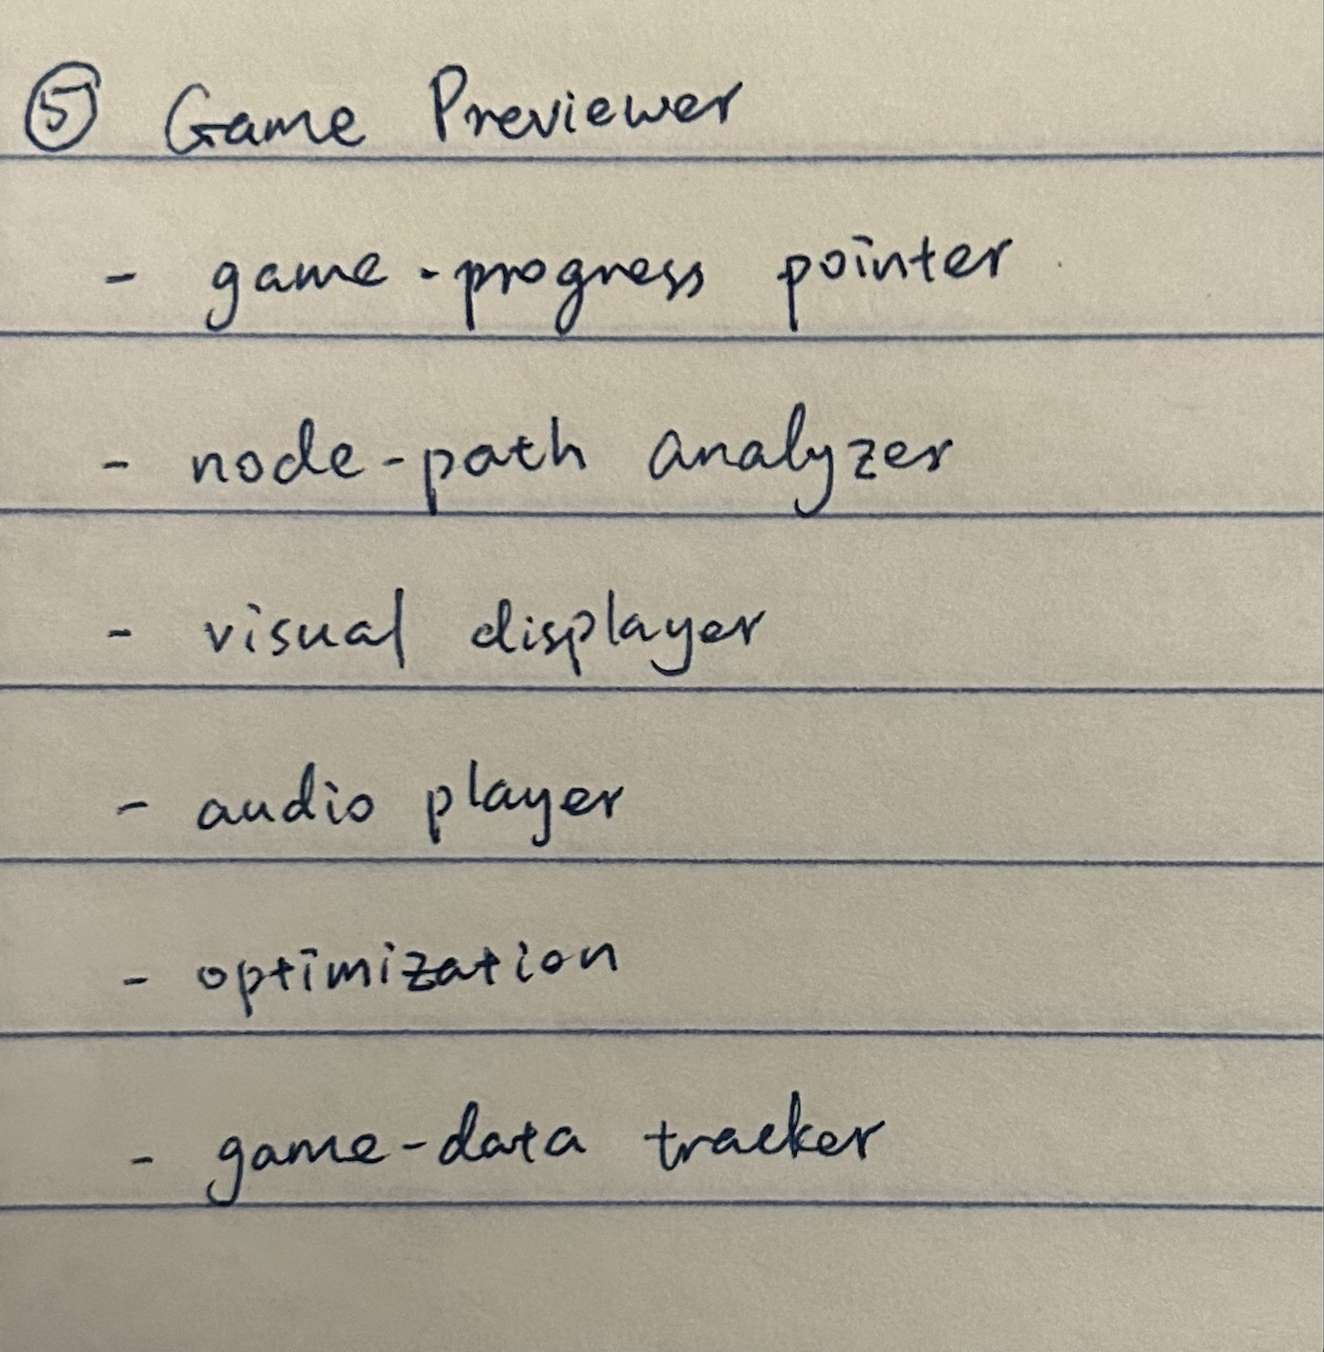 ⑤ Game Previewer
- game-progress pointer
- node-path analyzer
- visual displayer
- audio player
- optimization
- game-data tracker